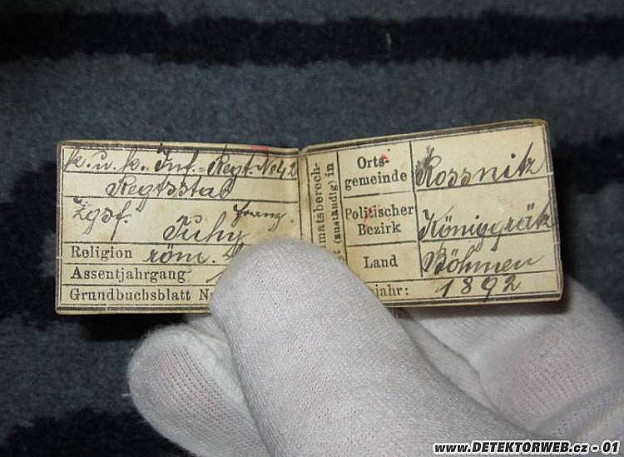 k. u. k. Inf.-Regt. Nr 42
Regtsstab
Zgsf. Franz
Tichy
Religion röm.
Assentjahrgang
Grundbuchsblatt
(zuständig) in
Orts-
gemeinde Rossnitz
Politischer
Bezirk Königgrätz
Land Böhmen
jahr: 1892
www.DETEKTORWEB.cz - 01